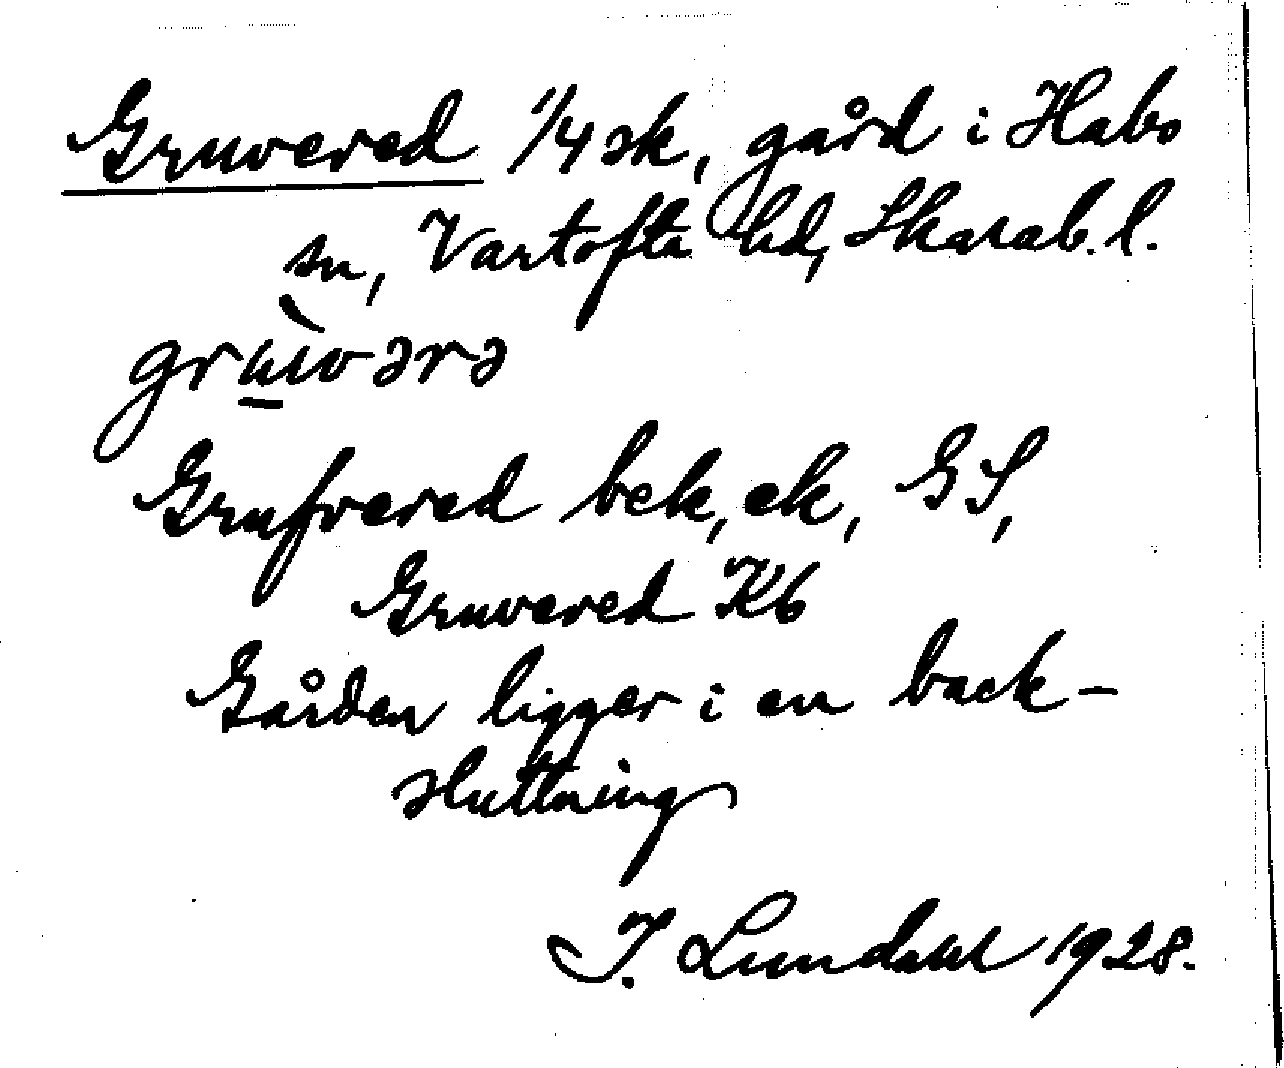 Gruvered 1/4 sk, gård i Habo
sn, Vartofta hd, Skarab. l.
grùwərə
Grufvered bek, ek, GS,
Gruvered Kb
Gården ligger i en back-
sluttning
I. Lundahl 1928.